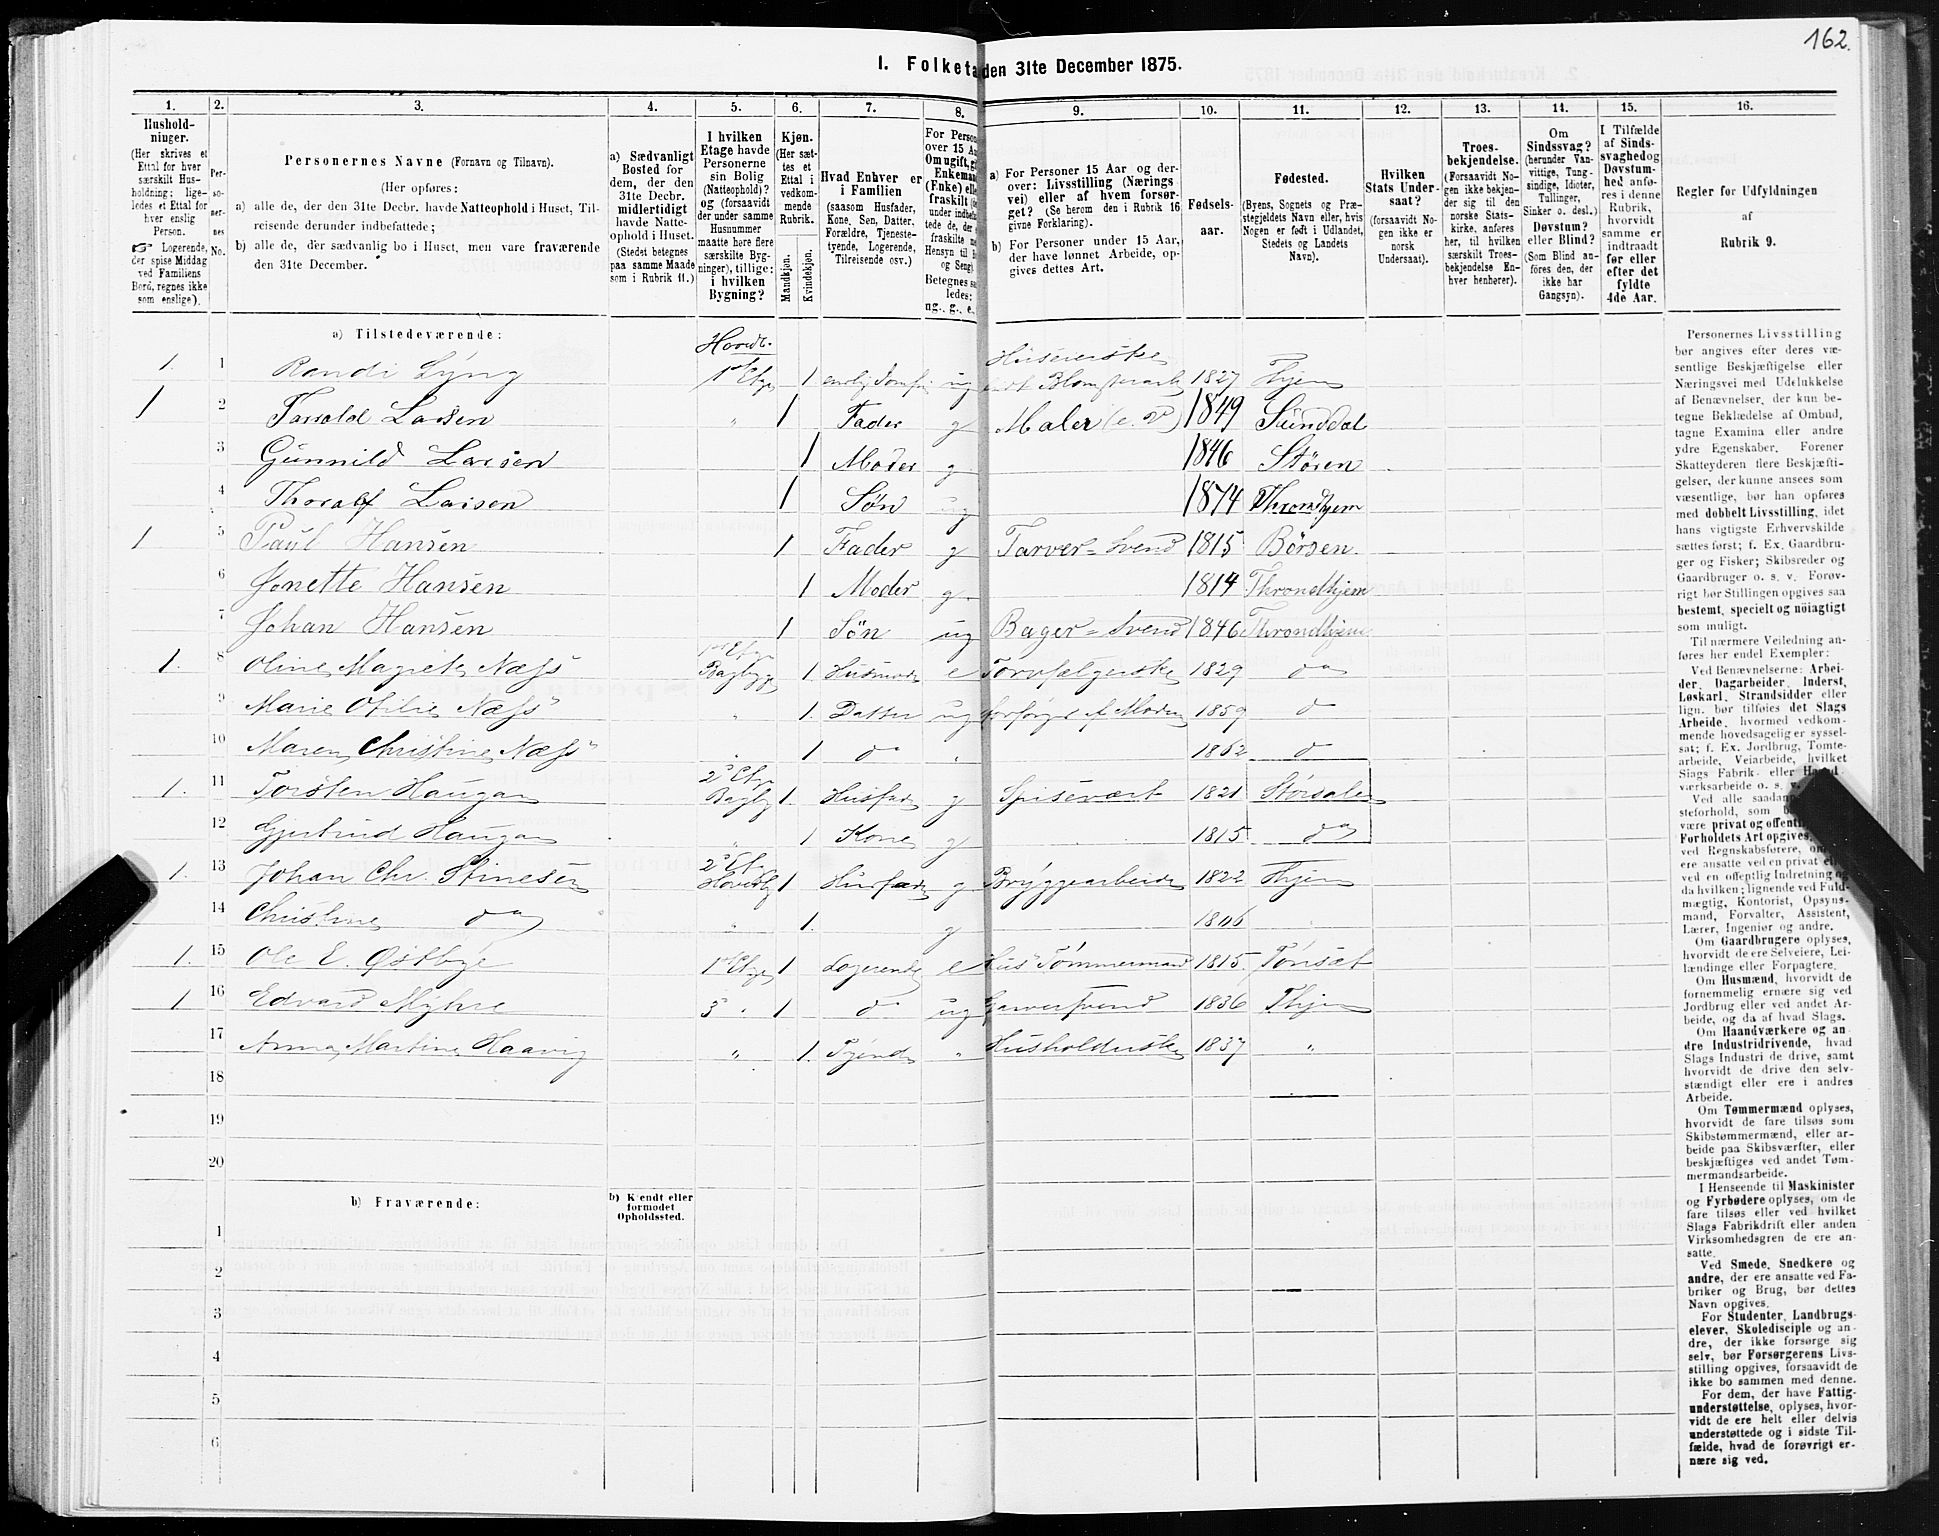 162.
I. Folketa den 31te December 1875.
1. 2. 3. 4. 5. 6. 7. 8. 9. 10. 11. 12. 13. 14. 15. 16.
Hushold-
ninger.
(Her skrives et
Ettal for hver
særskilt Hus-
holdning; lige-
ledes et Ettal for
hver enslig
Person.
☞ Logerende,
der spise Middag
ved Familiens
Bord, regnes ikke
som enslige).
Per-
so-
ner-
nes
No.
Personernes Navne (Fornavn og Tilnavn).
(Her opføres:
a) alle de, der den 31te Decbr. havde Natteophold i Huset, Til-
reisende derunder indbefattede;
b) alle de, der sædvanlig bo i Huset, men vare fraværende
den 31te December.
a) Sædvanligt
Bosted for
dem, der den
31te Decbr.
midlertidigt
havde Natte-
ophold i Huset.
(Stedet betegnes
paa samme Maade
som i Rubrik 11.)
I hvilken
Etage havde
Personerne
sin Bolig
(Natteophold)?
og (forsaavidt
der under samme
Husnummer
maatte høre flere
særskilte Byg-
ninger), tillige:
i hvilken
Bygning?
Kjøn.
(Her sæt-
tes et
Ettal i
vedkom-
mende
Rubrik.
Mandkjøn.
Kvindekjøn.
Hvad Enhver er
i Familien
(saasom Husfader,
Kone, Søn, Datter,
Forældre, Tjeneste-
tyende, Logerende,
Tilreisende osv.)
For Person
over 15 Aa
Om ugift, g
Enkeman
(Enke) elle
fraskilt
under indbe
tede de, der
fraskilte
Hensyn til
og Seng)
Betegnes
ledes:
ug., g., e.,
a) For Personer 15 Aar og der-
over: Livsstilling (Nærings
vei) eller af hvem forsør-
get? (Se herom den i Rubrik 16
givne Forklaring).
b) For Personer under 15 Aar,
der have lønnet Arbeide, op-
gives dettes Art.
Fødsels-
aar.
Fødested.
(Byens, Sognets og Præ-
stegjeldets Navn eller, hvis
Nogen er født i Udlandet,
Stedets og Landets
Navn).
Hvilken
Stats Under-
saat?
(forsaavidt No-
gen ikke er
norsk
Undersaat).
Troes-
bekjendelse.
(Forsaavidt No-
gen ikke bekjen-
der sig til den
norske Stats-
kirke, anføres
her, til hvilken
særskilt Troes-
bekjendelse En-
hver henhører).
Om
Sindssvag?
(herunder Van-
vittige, Tung-
sindige, Idioter,
Tullinger,
Sinker o. desl.)
Døvstum?
eller Blind?
(Som Blind an-
føres den, der
ikke har
Gangsyn).
I Tilfælde
af Sinds-
svaghed og
Døvstum-
hed anfø-
res i denne
Rubrik,
hvorvidt
samme er
indtraadt
før eller
efter det
fyldte
4de Aar.
Regler for Udfyldningen
af
Rubrik 9.
a) Tilstedeværende:
1. 1 Randi Lyng Hovedb. 1ste Etage 1 ug Blomsterarb 1827 Thjem
1 2 Larsen „ 1 Fader g Maler 1849 Sunddal
3 Gunnild Larsen 1 Moder g 1846 Støren
4 Thoralf Larsen 1 Søn ug 1874 Throndhjem
1 5 Paul Hansen 1 Fader g Svend 1815 Børsen
6 Jonette Hansen 1 Moder g. 1814 Throndhjem
7 Johan Hansen 1 Søn ug Bager-Svend 1846 Throndhjem
1. 8 Oline Magrete Næss Bagbyg 1. Husmoder e 1829 do
9 Marie Otilie Næss „ 1. Datter ug forsørget af Moderen 1859 do
10 Maren Christine Næss „ 1 do „ 1862 do
1. 11 Torsten Haugan 2d Etg Bagbg 1. Husfader g Spisevært 1821
12 Gjertrud Haugan „ 1 Kone g 1815. do
1. 13 Johan Chr. Stinesen 2d Et. Hovedbg 1 Husfader g Bryggearbeider 1822 Thjem
14 Christine do „ 1. g „
1. 15 Ole E. Østbye 1ste Etage 1 Logerende e Hus Tømmermand 1815. Tønset
1 16 Edvard Myhre 3 „ 1 do ug Garversvend 1836 Thjem
17 Anna Martine Haavig „ 1. Tyende „ Husholderske 1837 „
18
19
20
b) Fraværende:
b) Kjendt eller
formodet
Opholdssted.
1
2
3
4
5
6
Personernes Livsstilling
bør angives efter deres væ-
sentlige Beskjæftigelse eller
Næringsvei med Udelukkelse
af Benævnelser, der kun be-
tegne Beklædelse af Ombud,
tagne Examina eller andre
ydre Egenskaber. Forener
Skatteyderen flere Beskjæfti-
gelser, der kunne ansees som
væsentlige, bør han opføres
med dobbelt Livsstilling, idet
hans vigtigste Erhvervskilde
sættes først; f. Ex. Gaardbru-
ger og Fisker; Skibsreder og
Gaardbruger o. s. v. Forøv-
rigt bør Stillingen opgives saa
bestemt, specielt og nøiagtigt
som muligt.
Til nærmere Veiledning an-
føres her endel Exempler:
Ved Benævnelserne: Arbei-
der, Dagarbeider, Inderst,
Løskarl, Strandsidder eller
lign. bør tilføies det Slags
Arbeide, hvormed vedkom-
mende hovedsagelig er syssel-
sat; f. Ex. Jordbrug, Tomte-
arbeide, Veiarbeide, hvilket
Slags Fabrik- eller
værksarbeide o. s. v.
Ved alle saadan
steforhold, som
være privat og offent
Forholdets Art opgives,
ved Regnskabsførere,
ere ansatte ved en privat
ved en offentlig Indretning
da hvilken; lignende ved Fuld-
mægtig, Kontorist, Opsyns-
mand, Forvalter, Assistent,
Lærer, Ingeniør og andre.
Om Gaardbrugere oplyses,
hvorvidt de ere Selveiere, Lei-
lændinge eller Forpagtere.
Om Husmænd, hvorvidt de
fornemmelig ernære sig ved
Jordbrug eller ved andet Ar-
beide, og da af hvad Slags.
Om Haandværkere og an-
dre Industridrivende, hvad
Slags Industri de drive, samt
hvorvidt de drive den selv-
stændigt eller ere i andres
Arbeide.
Om Tømmermænd oplyses,
hvorvidt de fare tilsøs som
Skibstømmermænd, eller ar-
beide paa Skibsværfter, eller
beskjæftiges ved andet Tøm-
mermandsarbeide.
I Henseende til Maskinister
og Fyrbødere oplyses, om de
fare tilsøs eller ved hvilket
Slags Fabrikdrift eller anden
Virksomhedsgren de ere an-
satte.
Ved Smede, Snedkere og
andre, der ere ansatte ved Fa-
briker og Brug, bør dettes
Navn opgives.
For Studenter, Landbrugs-
elever, Skoledisciple og an-
dre, der ikke forsørge sig
selv, bør Forsørgerens Livs-
stilling opgives, forsaavidt de
ikke bo sammen med denne.
For dem, der have Fattig-
understøttelse, oplyses, hvor-
vidt de ere helt eller delvis
understøttede og i sidste Til-
fælde, hvad de forøvrigt er-
nære sig ved.